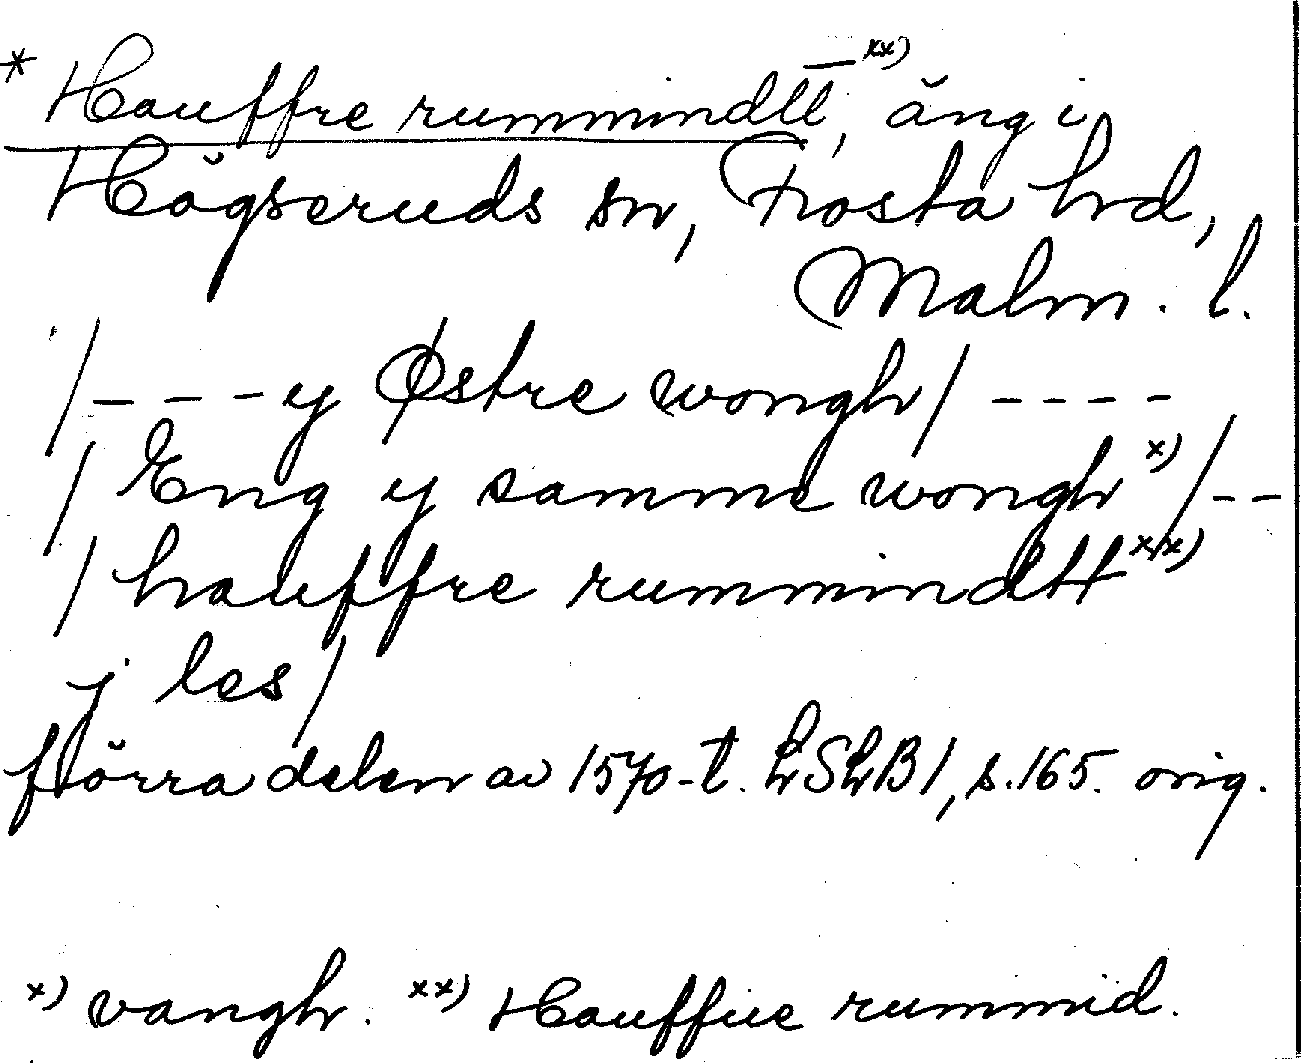 * Hauffre rummindtt, xx) äng i
Högseruds sn, Frosta hd,
Malm. l.
/---y Østre wongh/ ----
/ Eng y samme wongh x) /--
/ hauffre rummindtt xx)
j les /
förra delen av 1570-t. LSLB1, s.165. orig.
x) vangh. xx) Hauffue rummid.